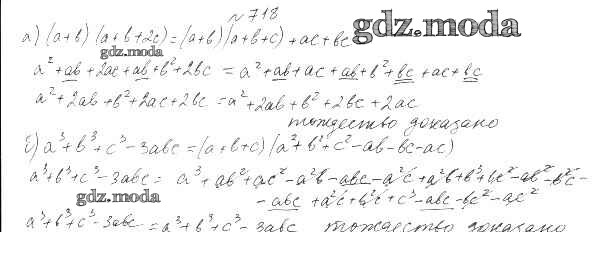 № 718
gdz.moda
а) (a+b)(a+b+2c)=(a+b)(a+b+c)+ac+bc
gdz.moda
a²+ab+2ac+ab+b²+2bc = a²+ab+ac+ab+b²+bc+ac+bc
a²+2ab+b²+2ac+2bc=a²+2ab+b²+2bc+2ac
тождество доказано
б) a³+b³+c³-3abc=(a+b+c)(a²+b²+c²-ab-bc-ac)
a³+b³+c³-3abc= a³+ab²+ac²-a²b-abc-a²c+a²b+b³+bc²-ab²-b²c-
gdz.moda
-abc+a²c+b²c+c³-abc-bc²-ac²
a³+b³+c³-3abc=a³+b³+c³-3abc тождество доказано